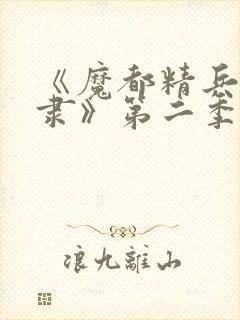 《魔都精兵
隶》第二季
浪九離山